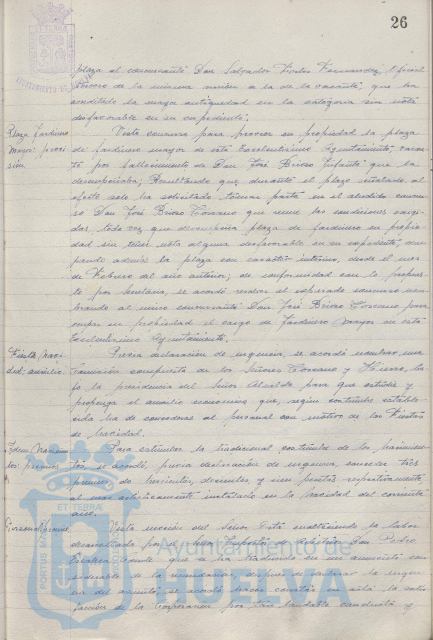 26
plaza al concursante Don Salvador Fernandez, Oficial
de la misma a la de la vacante, que ha
acreditado la mayor antigüedad en la categoria sin nota
desfavorable en su expediente.
Plaza Jardinero
mayor: provi-
sión.
Visto concurso para proveer en propiedad la plaza
de Jardinero mayor de este Excelentisimo Ayuntamiento, vacan-
te por fallecimiento de Don José Brioso Infante que la
desempeñaba; Resultando que, durante el plazo señalado al
efecto solo ha solicitado tomar parte en el aludido concur-
so Don José Brioso Toscano que reune las condiciones exigi-
das, toda vez que desempeña plaza de jardinero en propie-
dad sin tener nota alguna desfavorable en su expediente, ocu-
pando además la plaza con carácter interino, desde el mes
de Febrero del año anterior; de conformidad con lo propues-
to por Secretaria, se acordó resolver el expresado concurso nom-
brando al unico concursante Don José Brioso Toscano para
ocupar en propiedad el cargo de Jardinero Mayor de este
Excelentisimo Ayuntamiento.
Fiesta Navi-
dad: auxilio.
Previa declaración de urgencia, se acordó nombrar una
Comisión compuesta de los Señores Toscano y Hierro, ba-
jo la presidencia del Señor Alcalde para que estudie y
proponga el auxilio económico que, según costumbre estable-
cida ha de concederse al personal con motivo de las Fiestas
de Navidad.
premios
Para estimular la tradicional costumbre de los Nacimien-
tos, se acordó, previa declaración de urgencia, conceder tres
premios de trescientas, doscientas y cien pesetas respectivamente,
al mas artisticamente instalado en la Navidad del corriente
año.
Visto moción del Señor la labor
desarrollada por el Señor Don Pedro
que se ha traducido en un aumento con-
siderable de la recaudación, después de declarar la urgen-
cia del asunto, se acordó hacer constar en acta la satis-
facción de la Corporación por tan laudable conducta y
ET TERRA
PORTUS
Ayuntamiento de
HUELVA